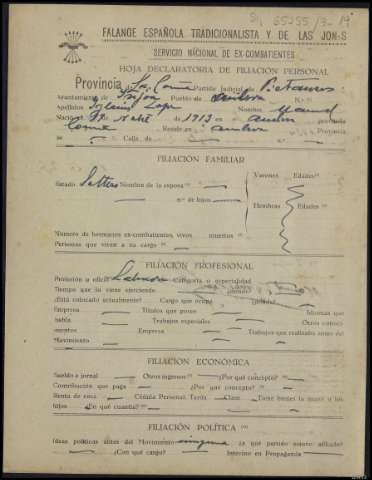 65255/3-19
FALANGE ESPAÑOLA TRADICIONALISTA Y DE LAS JON-S
SERVICIO NACIONAL DE EX-COMBATIENTES
HOJA DECLARATORIA DE FILIACIÓN PERSONAL
Provincia La Coruña Partido Judicial de Betanzos
Ayuntamiento de Pueblo de
Apellidos Nombre Manuel
Nació 1913 en provincia
Coruña Reside en
Calle de
FILIACIÓN FAMILIAR
Estado Soltero Nombre de la esposa Varones Edades
n.º de hijos
Hembras Edades
Número de hermanos ex-combatientes, vivos muertos
Personas que viven a su cargo
FILIACIÓN PROFESIONAL
Profesión u oficio Labrador Categoría o especialidad
Tiempo que lo viene ejerciendo
¿Está colocado actualmente? Cargo que ocupa
Empresa Títulos que posee Idiomas que
habla Trabajos especiales Otros conoci-
mientos Empresa Trabajos que realizaba antes del
Movimiento
FILIACIÓN ECONÓMICA
Sueldo o jornal Otros ingresos ¿Por qué concepto?
Contribución que paga ¿Por qué concepto?
Renta de casa Cédula Personal Tarifa Clase Tiene bienes la mujer o los
hijos ¿En qué cuantía?
FILIACIÓN POLÍTICA
Ideas políticas antes del Movimiento ninguna ¿a qué partido estuvo afiliado?
¿Con qué cargo? Intervino en Propaganda